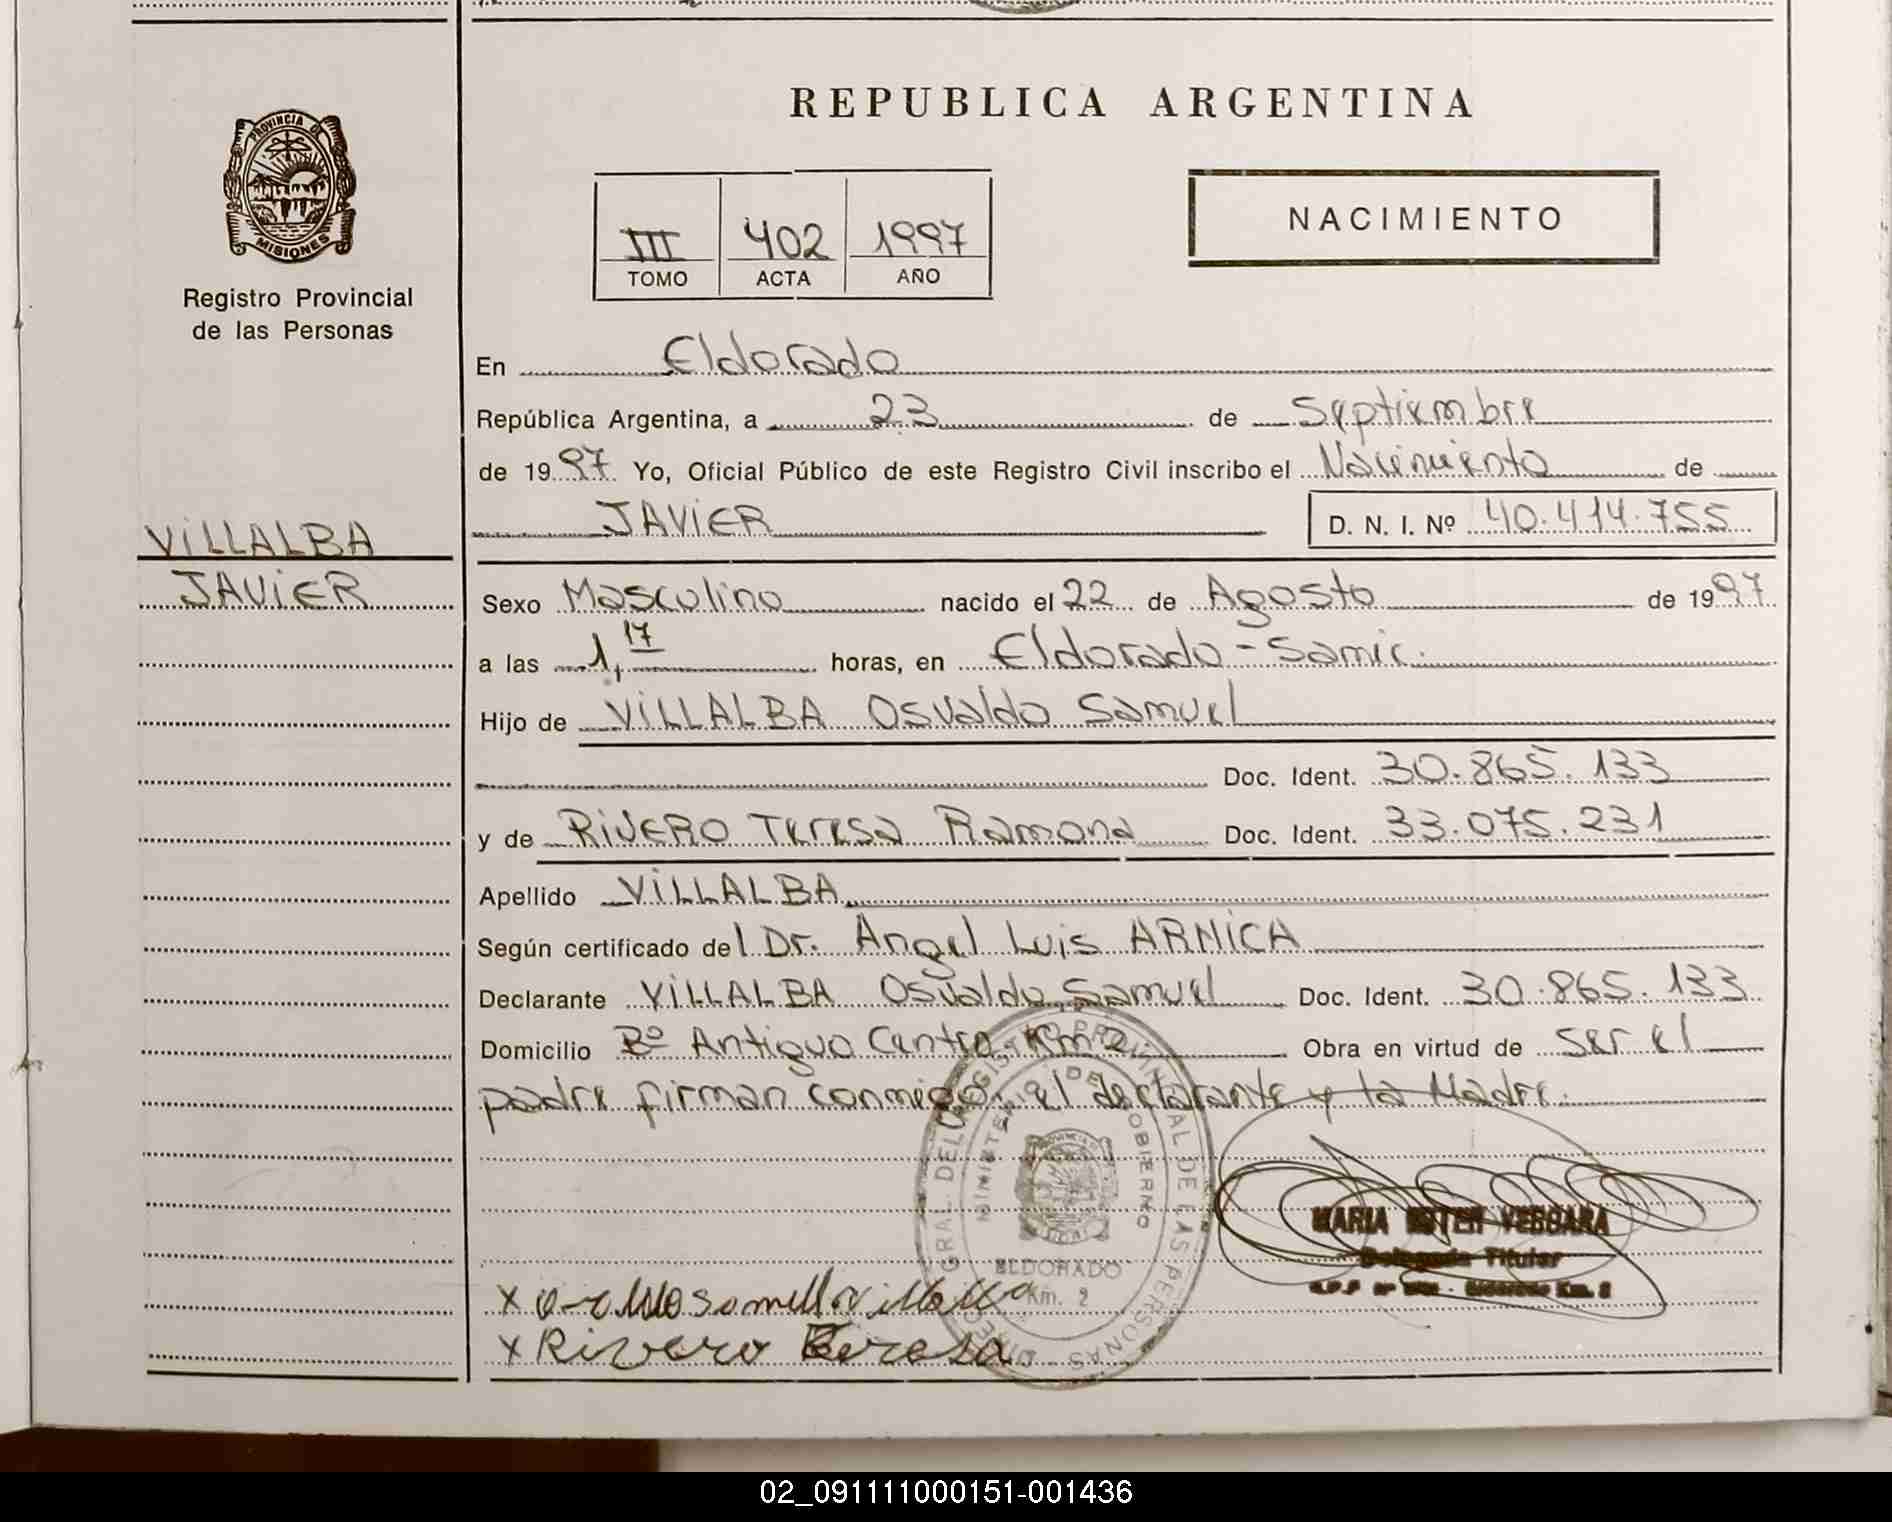 REPUBLICA ARGENTINA
PROVINCIA DE
MISIONES
Registro Provincial
de las Personas
III 402 1997
TOMO ACTA AÑO
NACIMIENTO
En Eldorado
República Argentina, a 23 de Septiembre
de 1997 Yo, Oficial Público de este Registro Civil inscribo el Nacimiento de
JAVIER D. N. I. Nº 40.414.755
VILLALBA
JAVIER
Sexo Masculino nacido el 22 de Agosto de 1997
a las 1,17 horas, en Eldorado - Samic.
Hijo de VILLALBA Osvaldo Samuel
Doc. Ident. 30.865.133
y de RIVERO Teresa Ramona Doc. Ident. 33.075.231
Apellido VILLALBA
Según certificado del Dr. Angel Luis ARNICA
Declarante VILLALBA Osvaldo Samuel Doc. Ident. 30.865.133
Domicilio Bº Antiguo Centro, Km 2 Obra en virtud de ser el
padre firman conmigo: el declarante y la Madre.
DIRECC GRAL. DEL REGISTRO PROVINCIAL DE LAS PERSONAS
MINISTERIO DE GOBIERNO
ELDORADO
Km. 2
MARIA ESTER VERGARA
Delegada Titular
Eldorado Km. 2
x
x Rivero Teresa
02_091111000151-001436